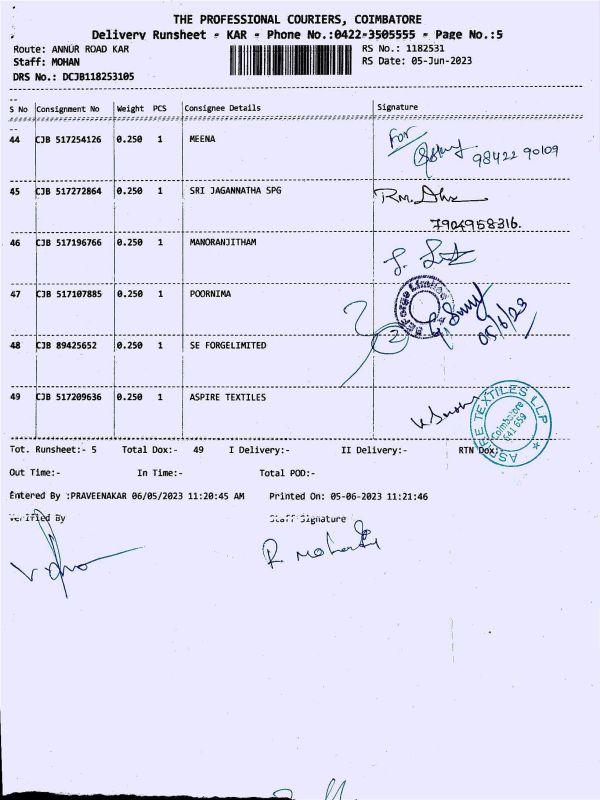 THE PROFESSIONAL COURIERS, COIMBATORE
Delivery Runsheet - KAR - Phone No.:0422-3505555 - Page No.:5
Route: ANNUR ROAD KAR RS No.: 1182531
Staff: MOHAN RS Date: 05-Jun-2023
DRS No.: DCJB118253105
S No Consignment No Weight PCS Consignee Details Signature
44 CJB 517254126 0.250 1 MEENA For 98422 90109
45 CJB 517272864 0.250 1 SRI JAGANNATHA SPG RM.
7904958316.
46 CJB 517196766 0.250 1 MANORANJITHAM
47 CJB 517107885 0.250 1 POORNIMA 05/6/23
48 CJB 89425652 0.250 1 SE FORGELIMITED 2
49 CJB 517209636 0.250 1 ASPIRE TEXTILES
ASPIRE TEXTILES LLP
Coimbatore
641 659
Tot. Runsheet:- 5 Total Dox:- 49 I Delivery:- II Delivery:- RTN Dox:-
Out Time:- In Time:- Total POD:-
Entered By :PRAVEENAKAR 06/05/2023 11:20:45 AM Printed On: 05-06-2023 11:21:46
Verified By Staff Signature